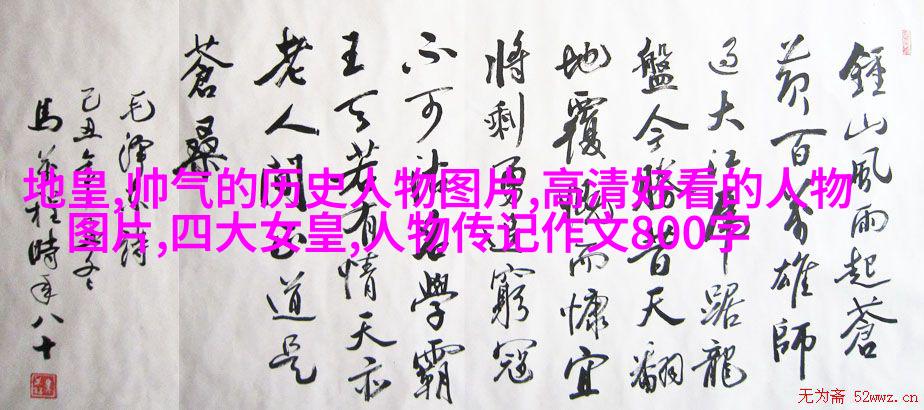 鍾山風雨起蒼
黄百万雄師
過大江虎踞龍
盤今勝昔天翻
地覆慨而慷宜
將剩勇追窮寇
不可沽名學霸
王天若有情天亦
老人間正道是
蒼桑
毛澤東詩
己丑年冬
馬桂時年八十
地皇,帅气的历史人物图片,高清好看的人物
图片,四大女皇,人物传记作文800字
无为斋 52wwz.cn